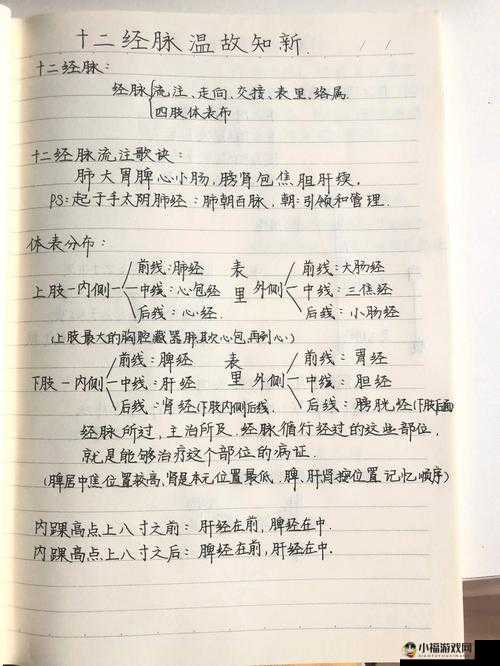 十二经脉温故知新.
十二经脉:
经脉 流注、走向、交接、表里、络属.
四肢体表布
十二经脉流注歌诀:
肺大胃脾心小肠,膀肾包焦胆肝续.
PS:起于手太阴肺经:肺朝百脉,朝:引领和管理.
体表分布:
前线:肺经 表 前线:大肠经
上肢一内侧 中线:心包经 里 外侧 中线:三焦经
后线:心经. 后线:小肠经
(上肢最大的胸腔藏器肺其次心包,再到心)
前线:脾经 表 前线:胃经
下肢一内侧 中线:肝经 里 外侧 中线:胆经
后线:肾经(下肢内侧后线. 后线:膀胱经(下肢后面
经脉所过,主治所及.经脉循行经过的这些部位,
就是能够治疗这个部位的病证.
(脾居中焦位置较高,肾是本元位置最低.脾、肝肾按位置记忆顺序)
内踝高点上八寸之前:肝经在前,脾经在中.
内踝高点上八寸之后:脾经在前,肝经在中.
小福游戏网
xiaofuwu.com